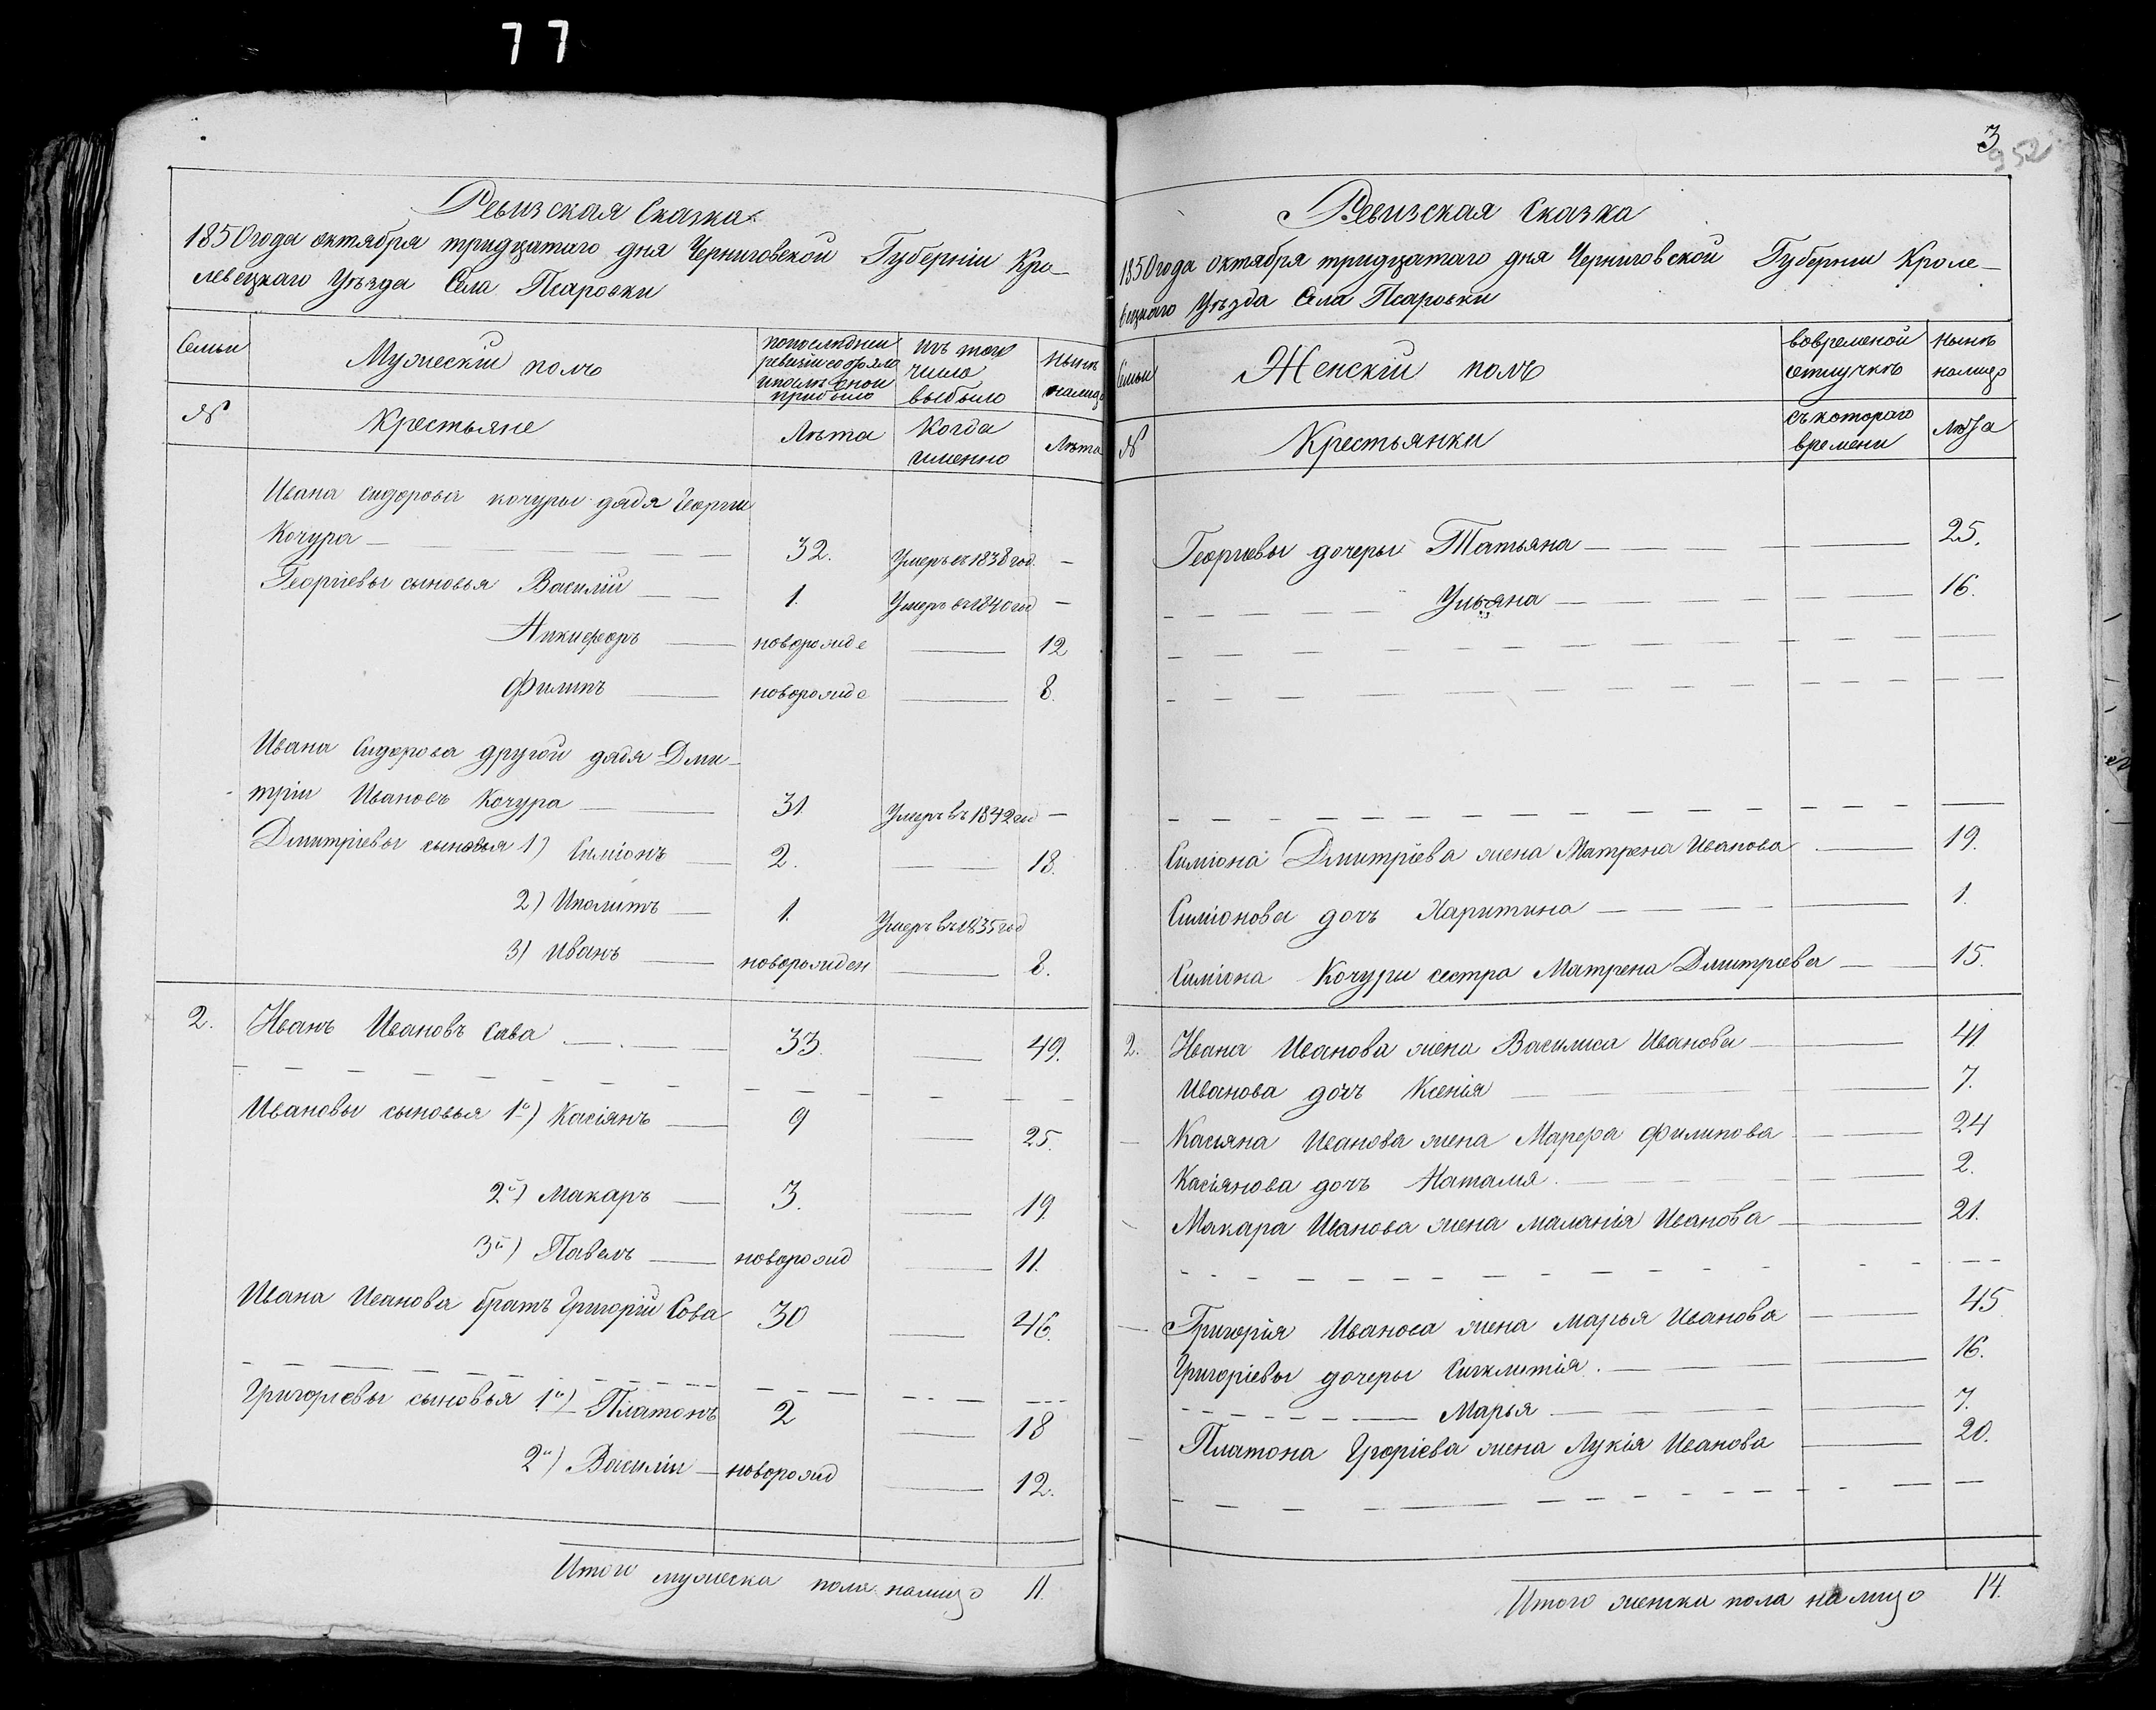 77
Ревизская Сказка
1850 года октября тридцатаго дня Черниговской Губерніи Кро-
левецкаго Уѣзда Села Псаровки
Семьи
Мужескій полъ
попослѣдней
ревизіи состояло
и послѣ оной
прибыло
изъ того
числа
выбыло
нынѣ
налицо
№
Крестьяне
Лѣта
Когда
именно
Лѣта
Ивана Сидорова кочуры дядя Георгій
Кочура 32. Умеръ въ 1838 год. —
Георгіевы сыновья Василій 1. Умеръ въ 1840 год —
Никифоръ новорожде 12
Филипъ новорожде 8.
Ивана Сидорова другой дядя Дми-
трій Ивановъ Кочура 31. Умеръ въ 1842 год —
Дмитріевы сыновья 1) Симіонъ 2. 18.
2) Иполитъ 1. Умеръ въ 1835 год
3) Иванъ новорожден 8.
2. Иванъ Ивановъ Сава 33. 49.
Ивановы сыновья 1й) Касіянъ 9 25.
2й) Макаръ 3. 19.
3й) Павелъ новорожд 11.
Ивана Иванова братъ Григорій Сова 30 46.
Григоріевы сыновья 1й) Платонъ 2 18
2й) Василій новорожд 12.
Итого мужеска пола налицо 11.
3
952
Ревизская Сказка
1850 года октября тридцатаго дня Черниговской Губерніи Кроле-
вецкаго Уѣзда Села Псаровки
Семьи
Женскій полъ
вовременой
отлучкѣ
нынѣ
налицо
№
Крестьянки
съкотораго
времени
Лѣта
Георгіевы дочеры Татьяна 25.
Ульяна 16.
Симіона Дмитріева жена Матрена Иванова 19.
Симіонова дочъ Харитина 1.
Симіона Кочуры сестра Матрена Дмитріева 15.
2. Ивана Иванова жена Василиса Иванова 41
Иванова дочъ Ксенія 7.
Касіяна Иванова жена Марфа Филипова 24
Касіянова дочъ Наталія 2.
Макара Иванова жена Маланія Иванова 21.
Григорія Иванова жена Марья Иванова 45
Григоріевы дочеры Сигклитія 16.
Марья 7.
Платона Григоріева жена Лукія Иванова 20.
Итого женска пола налицо 14.